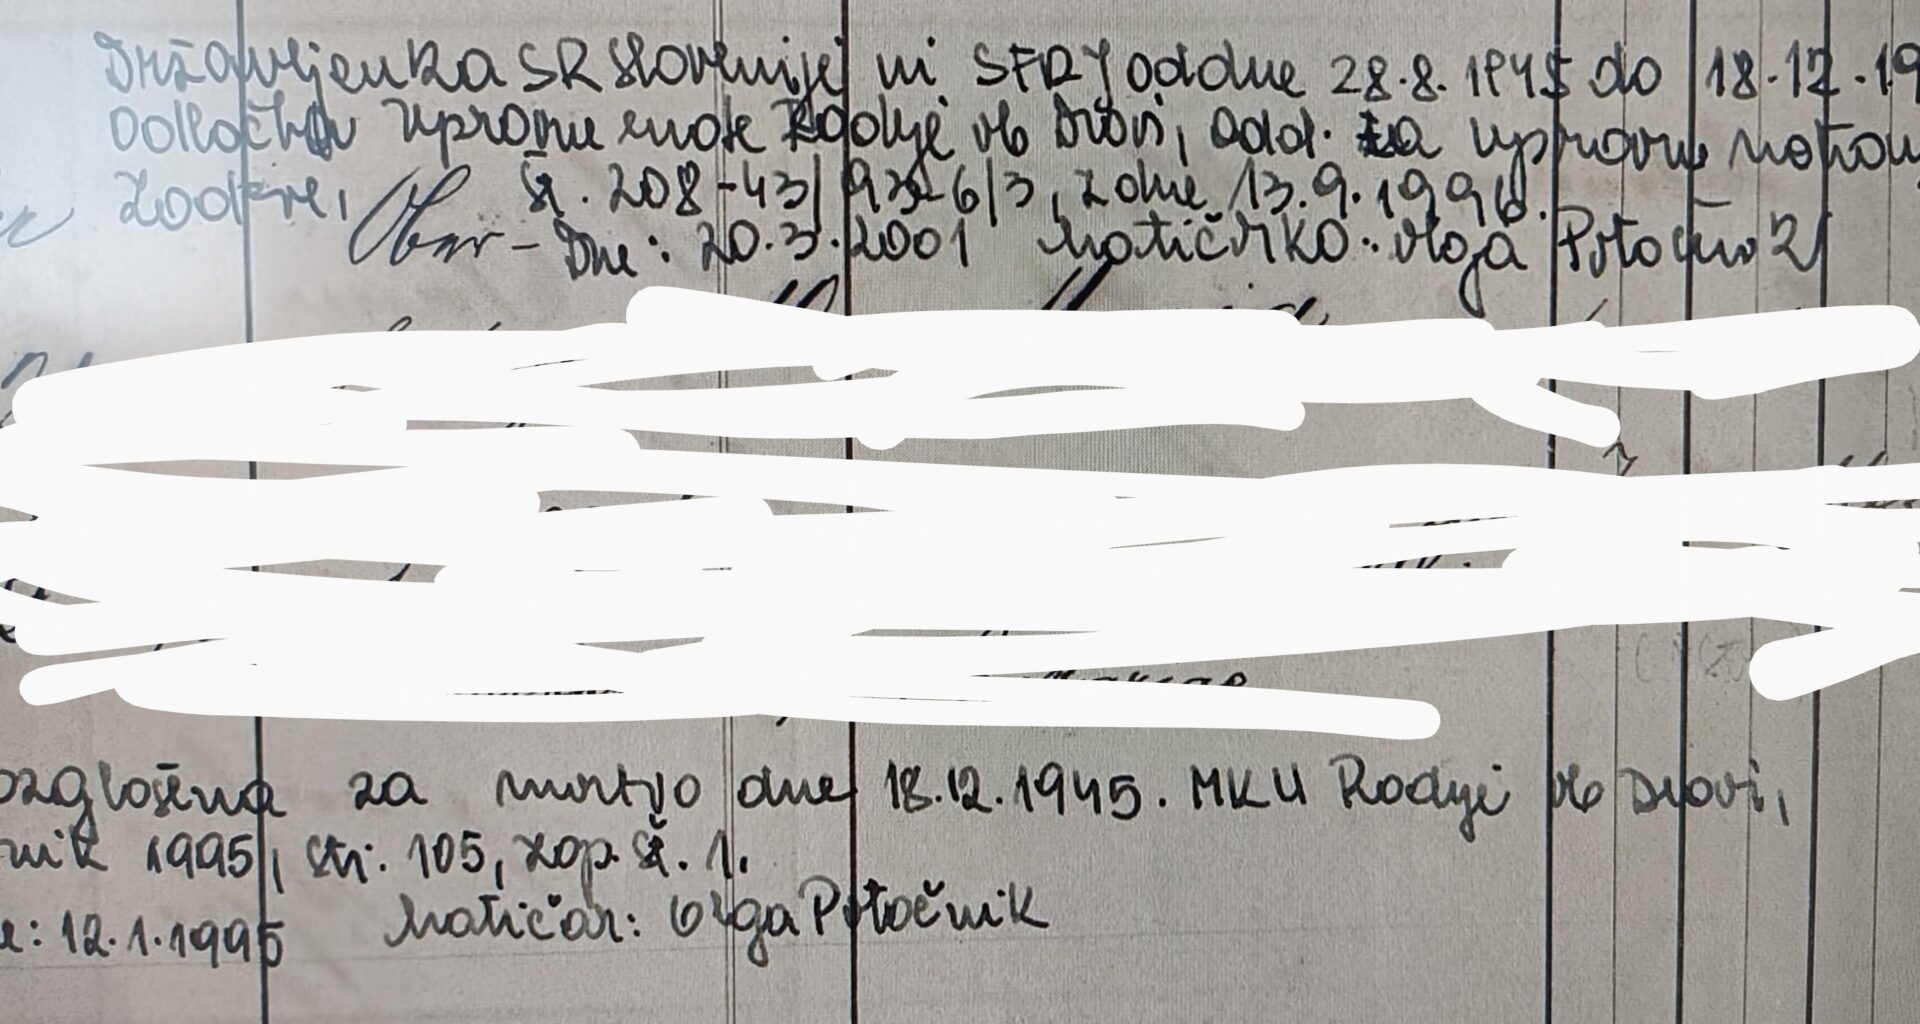 Državljanka SR Slovenije in SFRJ od dne 28.8.1945 do 18.12.19
Odločba Upravne enote Radlje ob Dravi, Odd. za upravne notranj
zadeve, št. 208-43/93-6/3, z dne 13.9.1996.
Dne: 20.3.2001 Matičarka: Olga Potočnik
ozglašena za mrtvo dne 18.12.1945. MKU Radlje ob Dravi,
nik 1995, str. 105, zap. št. 1.
e: 12.1.1995 Matičar: Olga Potočnik